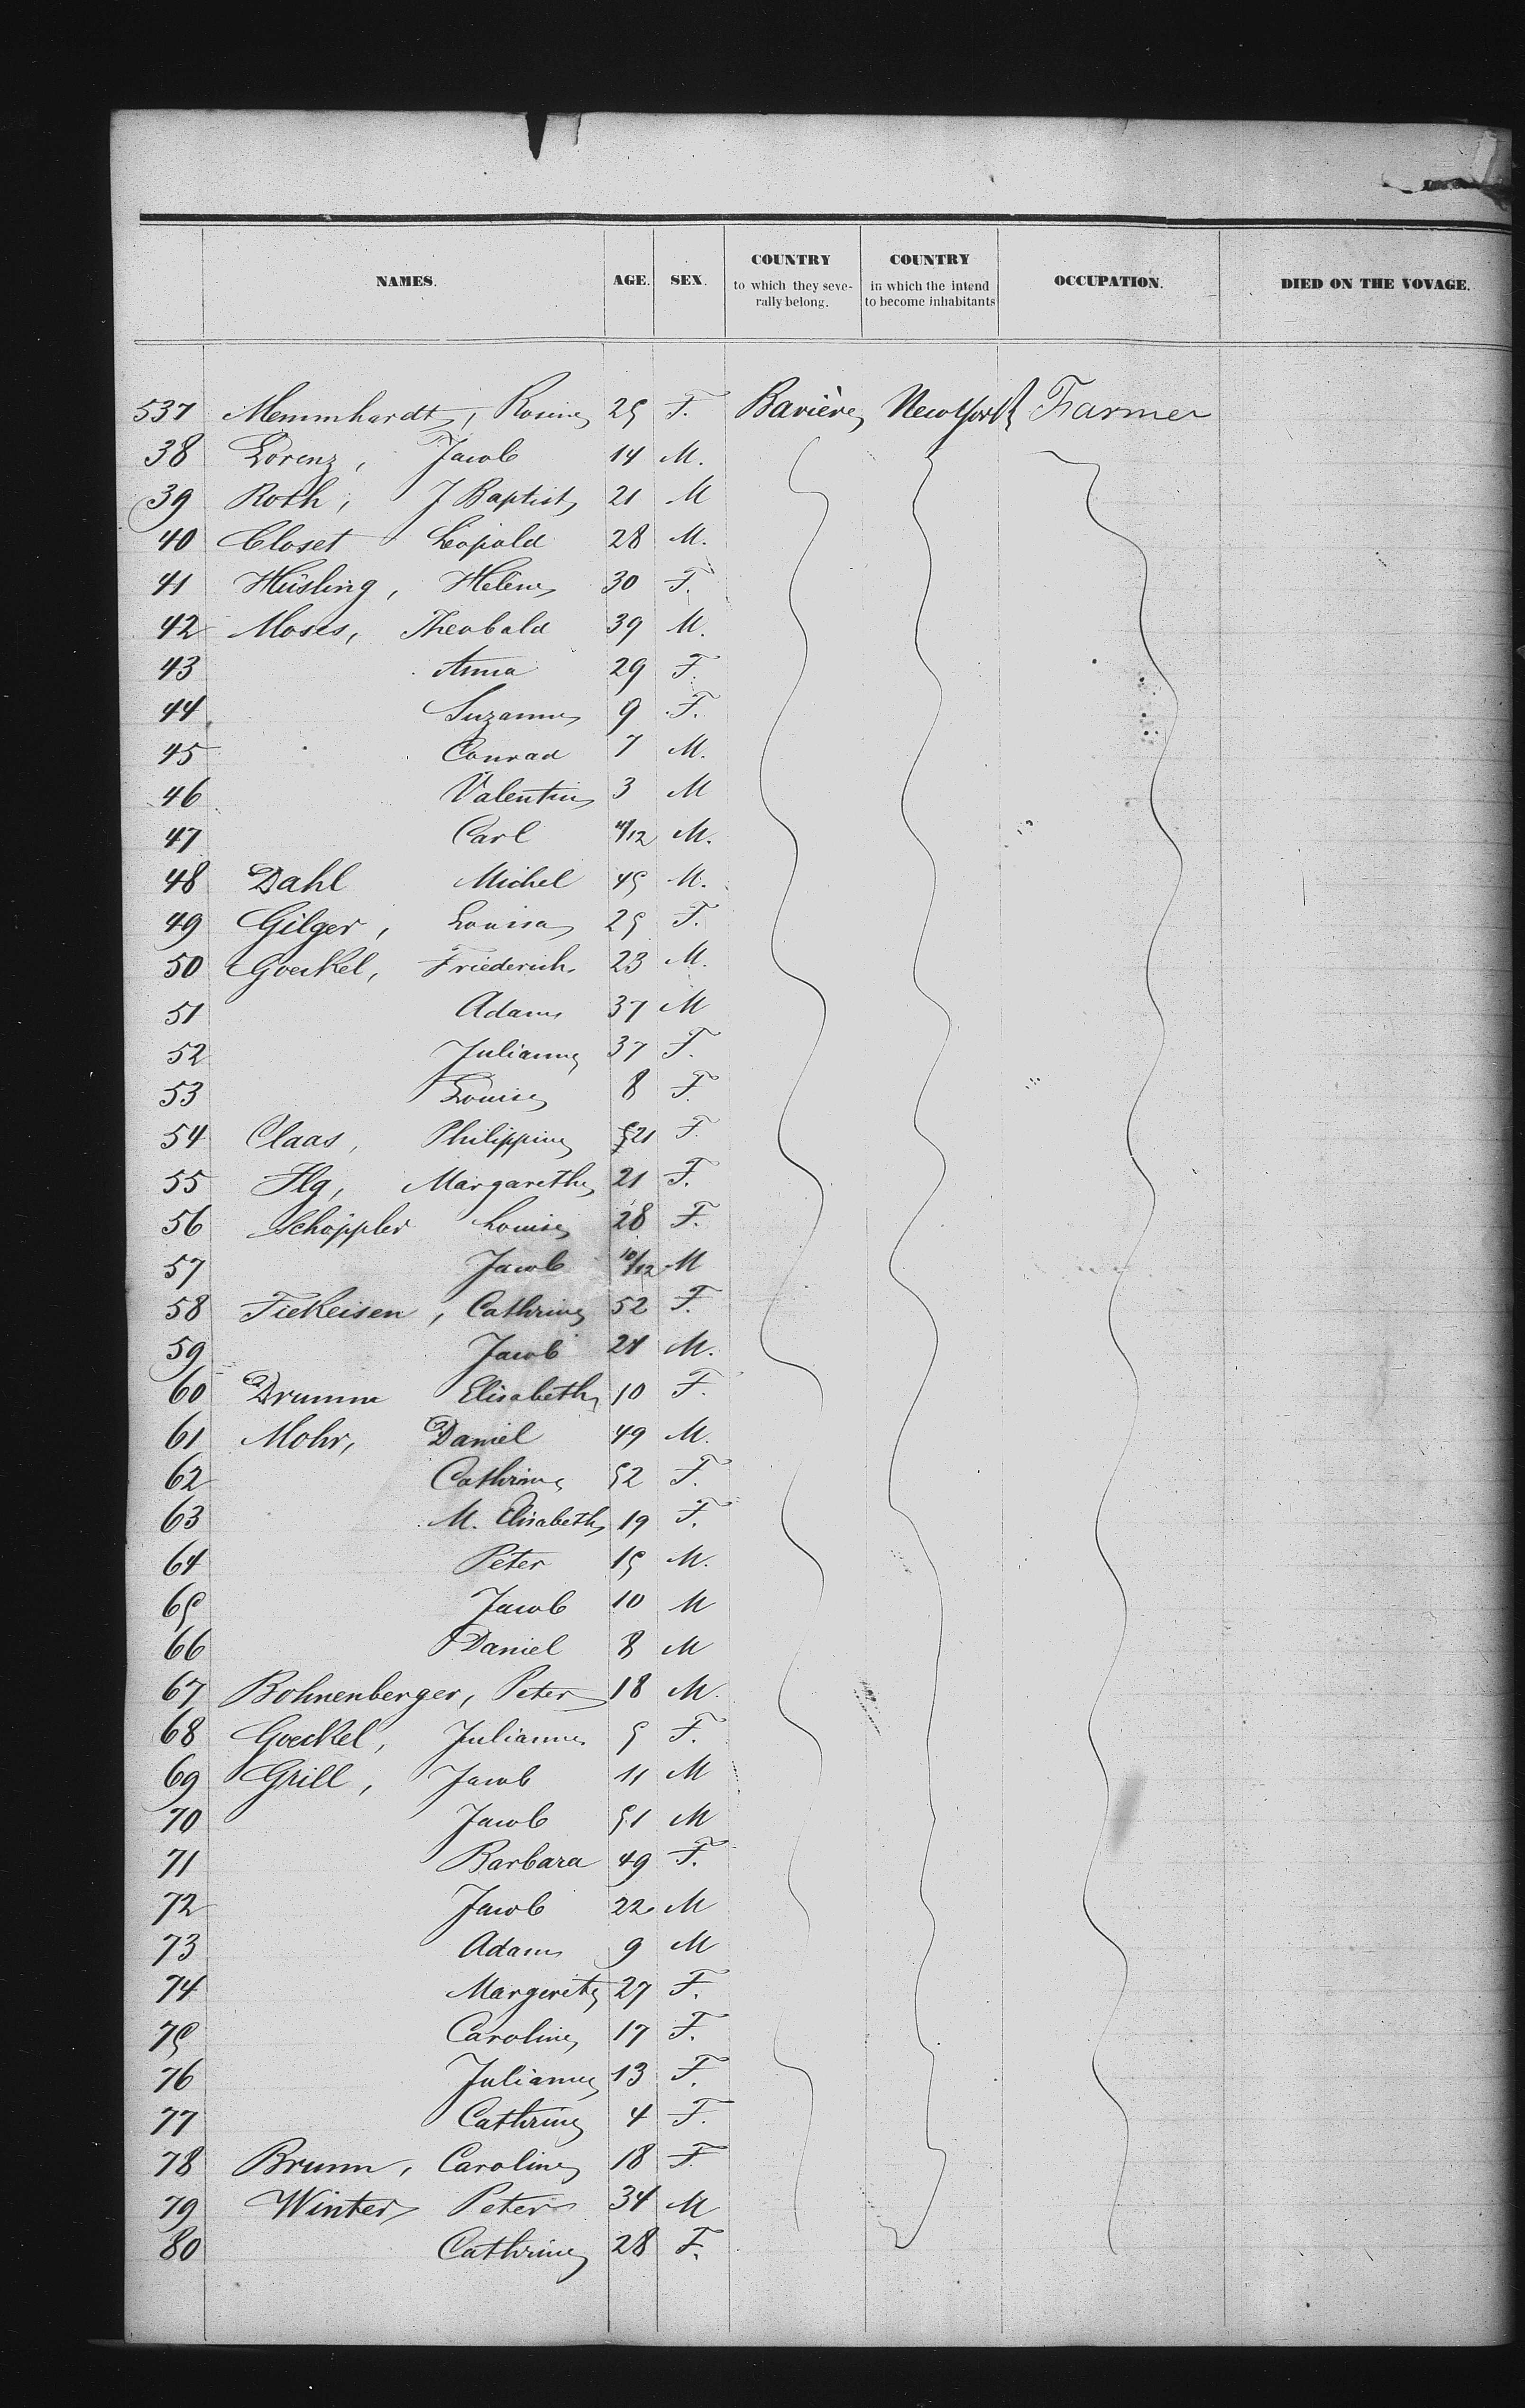 NAMES. AGE. SEX. COUNTRY to which they seve-rally belong. COUNTRY in which the intend to become inhabitants OCCUPATION. DIED ON THE VOVAGE.
537 Memmhardt, Rosine 25 F. Bavière NewYork Farmer
38 Lorenz, Jacob 14 M.
39 Roth, J Baptist 21 M
40 Closet Léopold 28 M.
41 Hüsling, Helene 30 F.
42 Moses, Theobald 39 M.
43 Anna 29 F.
44 Suzanne 9 F.
45 Conrad 7 M.
46 Valentin 3 M
47 Carl 11/12 M.
48 Dahl Michel 45 M.
49 Gilger, Louisa 25 F.
50 Goeckel, Friederich 23 M.
51 Adam 37 M
52 Julianne 37 F.
53 Louise 8 F.
54 Claas, Philippine 21 F.
55 Ilg, Margarethe 21 F.
56 Schöppler Louise 28 F.
57 Jacob 10/12 M
58 Fickeisen, Cathrine 52 F.
59 Jacob 21 M.
60 Drumm Elisabeth 10 F.
61 Mohr, Daniel 49 M.
62 Cathrine 52 F.
63 M. Elisabeth 19 F.
64 Peter 15 M.
65 Jacob 10 M
66 Daniel 8 M
67 Bohnenberger, Peter 18 M.
68 Goeckel, Julianne 5 F.
69 Grill, Jacob 11 M
70 Jacob 51 M
71 Barbara 49 F.
72 Jacob 22 M
73 Adam 9 M
74 Margerite 27 F.
75 Caroline 17 F.
76 Julianne 13 F.
77 Cathrine 4 F.
78 Brunn, Caroline 18 F
79 Winter Peter 34 M
80 Cathrine 28 F.